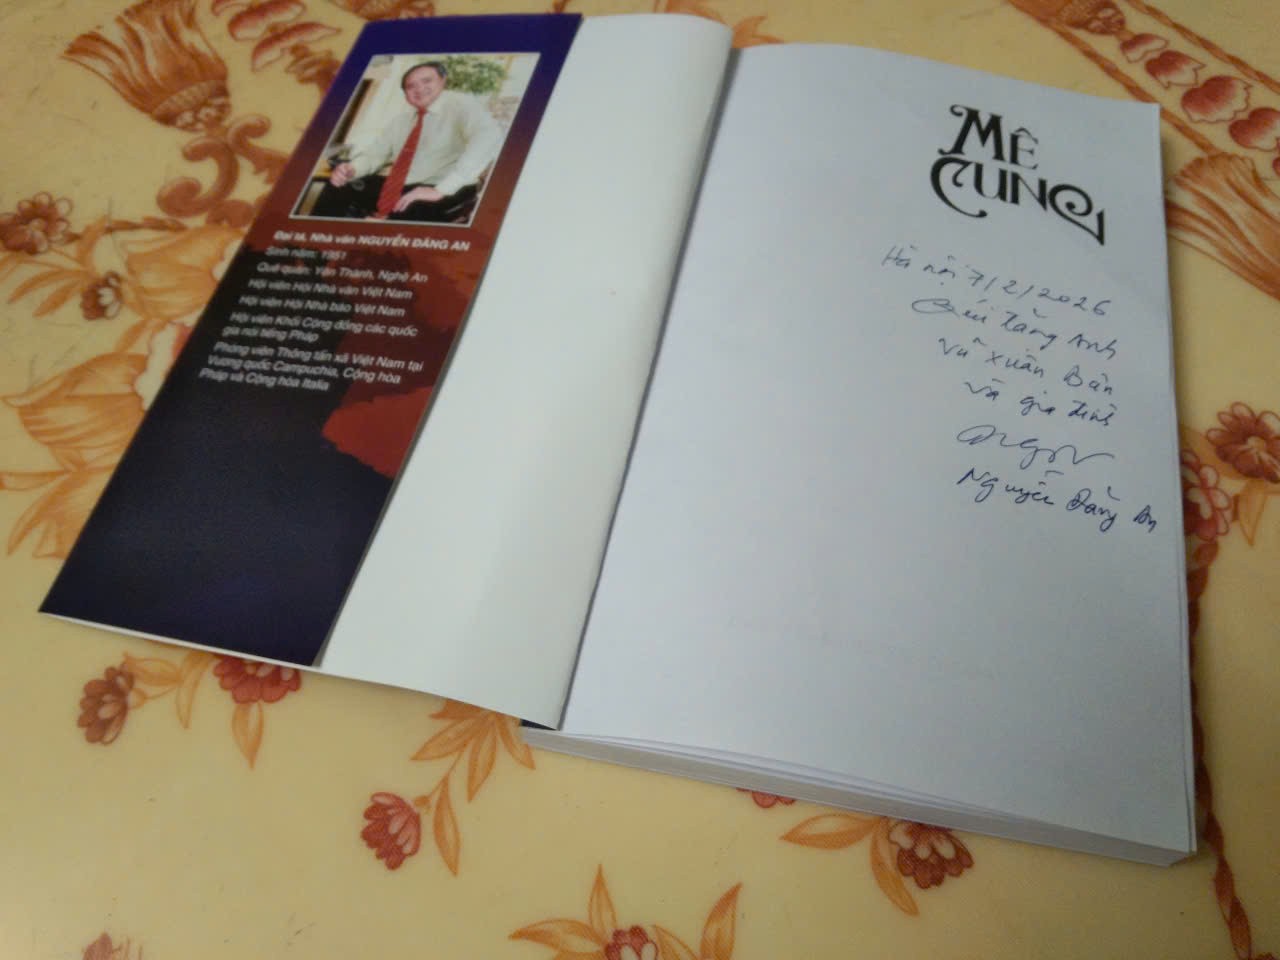 Đại tá, Nhà văn NGUYỄN ĐĂNG AN
Sinh năm: 1951
Quê quán: Yên Thành, Nghệ An
Hội viên Hội Nhà văn Việt Nam
Hội viên Hội Nhà báo Việt Nam
Hội viên Khối Cộng đồng các quốc
gia nói tiếng Pháp
Phóng viên Thông tấn xã Việt Nam tại
Vương quốc Campuchia, Cộng hòa
Pháp và Cộng hòa Italia
MÊ
CUNG
Hà nội 7/2/2026
Anh
Vũ Xuân Bân
và gia đình
Nguyễn Đăng An